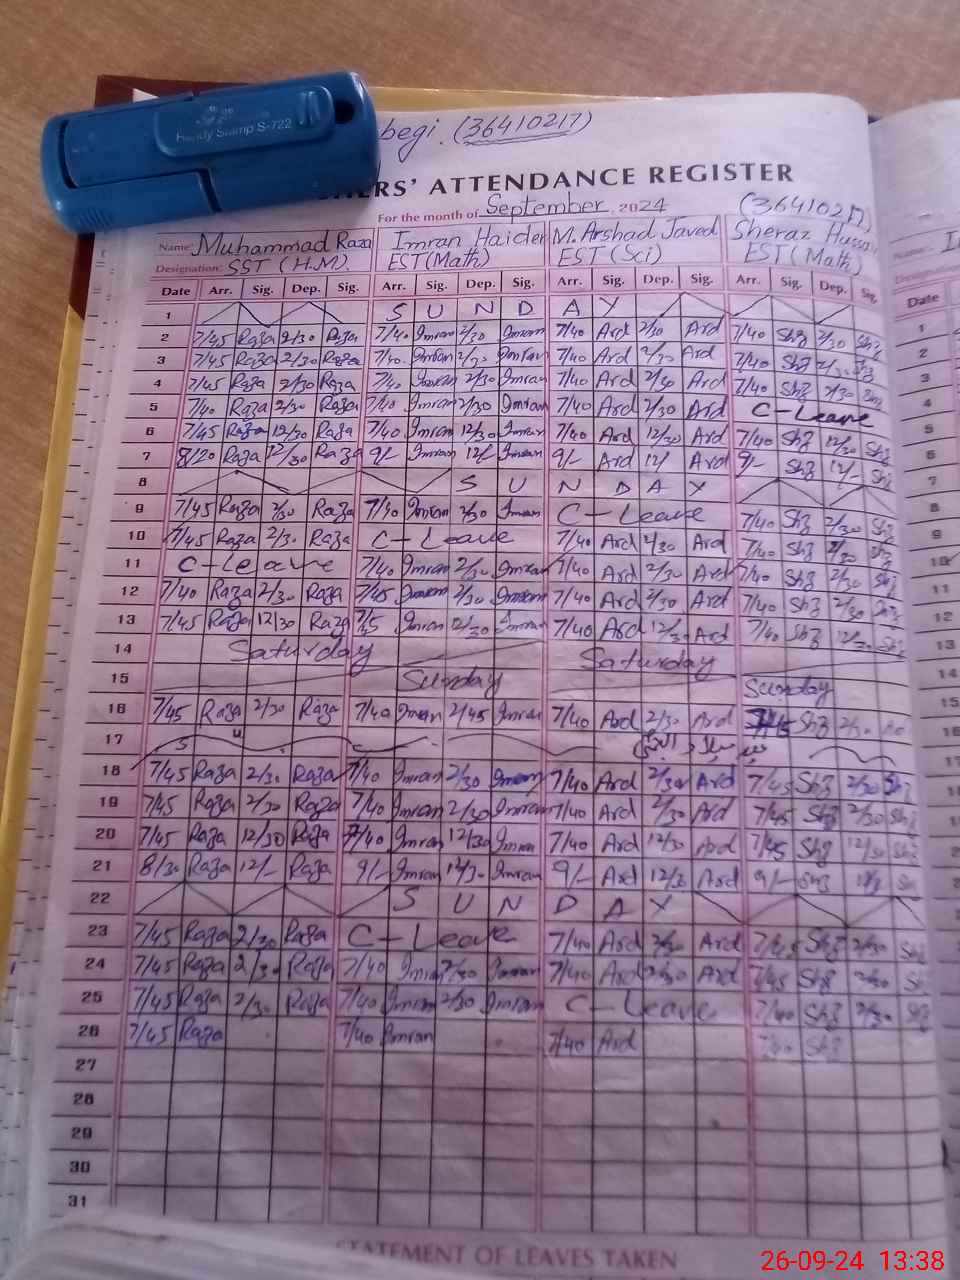 Handy Stamp S-722
begi. (36410217)
ERS' ATTENDANCE REGISTER
For the month of September, 2024 (36410217)
Name: Muhammad Raza Imran Haider M. Arshad Javed Sheraz Hussai
Designation: SST (H.M). EST(Math) EST (Sci) EST (Math)
Date Arr. Sig. Dep. Sig. Arr. Sig. Dep. Sig. Arr. Sig. Dep. Sig. Arr. Sig. Dep. Sig.
1 S U N D A Y
2 7/45 Raza 2/30 Raza 7/40 Imran 2/30 Imran 7/40 Ard 2/30 Ard 7/40 Shz 2/30 Shz
3 7/45 Raza 2/30 Raza 7/40 Imran 2/30 Imran 7/40 Ard 2/30 Ard 7/40 Shz 2/30 Shz
4 7/45 Raza 2/30 Raza 7/40 Imran 2/30 Imran 7/40 Ard 2/30 Ard 7/40 Shz 2/30 Shz
5 7/40 Raza 2/30 Raza 7/40 Imran 2/30 Imran 7/40 Ard 2/30 Ard C-Leave
6 7/45 Raza 12/30 Raza 7/40 Imran 12/30 Imran 7/40 Ard 12/30 Ard 7/40 Shz 12/30 Shz
7 8/20 Raza 12/30 Raza 9/- Imran 12/- Imran 9/- Ard 12/ Ard 9/- Shz 12/- Shz
8 S U N D A Y
9 7/45 Raza 2/30 Raza 7/30 Imran 2/30 Imran C-Leave 7/40 Shz 2/30 Shz
10 7/45 Raza 2/30 Raza C-Leave 7/40 Ard 2/30 Ard 7/40 Shz 2/30 Shz
11 C-Leave 7/40 Imran 2/30 Imran 7/40 Ard 2/30 Ard 7/40 Shz 2/30 Shz
12 7/40 Raza 2/30 Raza 7/45 Imran 2/30 Imran 7/40 Ard 2/30 Ard 7/40 Shz 2/30 Shz
13 7/45 Raza 12/30 Raza Imran 12/30 Imran 7/40 Ard 12/30 Ard 7/40 Shz 12/30 Shz
14 Saturday Saturday
15 Sunday Sunday
16 7/45 Raza 2/30 Raza 7/40 Imran 2/45 Imran 7/40 Ard 2/30 Ard 7/45 Shz 2/30
17
18 7/45 Raza 2/30 Raza 7/40 Imran 2/30 Imran 7/40 Ard 2/30 Ard 7/45 Shz 2/30 Shz
19 7/45 Raza 2/30 Raza 7/40 Imran 2/30 Imran 7/40 Ard 2/30 Ard 7/45 Shz 2/30 Shz
20 7/45 Raza 12/30 Raza 7/40 Imran 12/30 Imran 7/40 Ard 12/30 Ard 7/45 Shz 12/30 Shz
21 8/30 Raza 12/- Raza 9/- Imran 12/30 Imran 9/- Ard 12/30 Ard 9/- Shz
22 S U N D A Y
23 7/45 Raza 2/30 Raza C-Leave 7/40 Ard 2/30 Ard 7/45 Shz 2/30 Shz
24 7/45 Raza 2/30 Raza 7/40 Imran 2/30 Imran 7/40 Ard 2/30 Ard 7/45 Shz 2/30
25 7/45 Raza 2/30 Raza 7/40 Imran 2/30 Imran C-Leave 7/40 Shz 2/30 Shz
26 7/45 Raza 7/40 Imran 7/40 Ard 7/40 Shz
27
28
29
30
31
STATEMENT OF LEAVES TAKEN
26-09-24 13:38